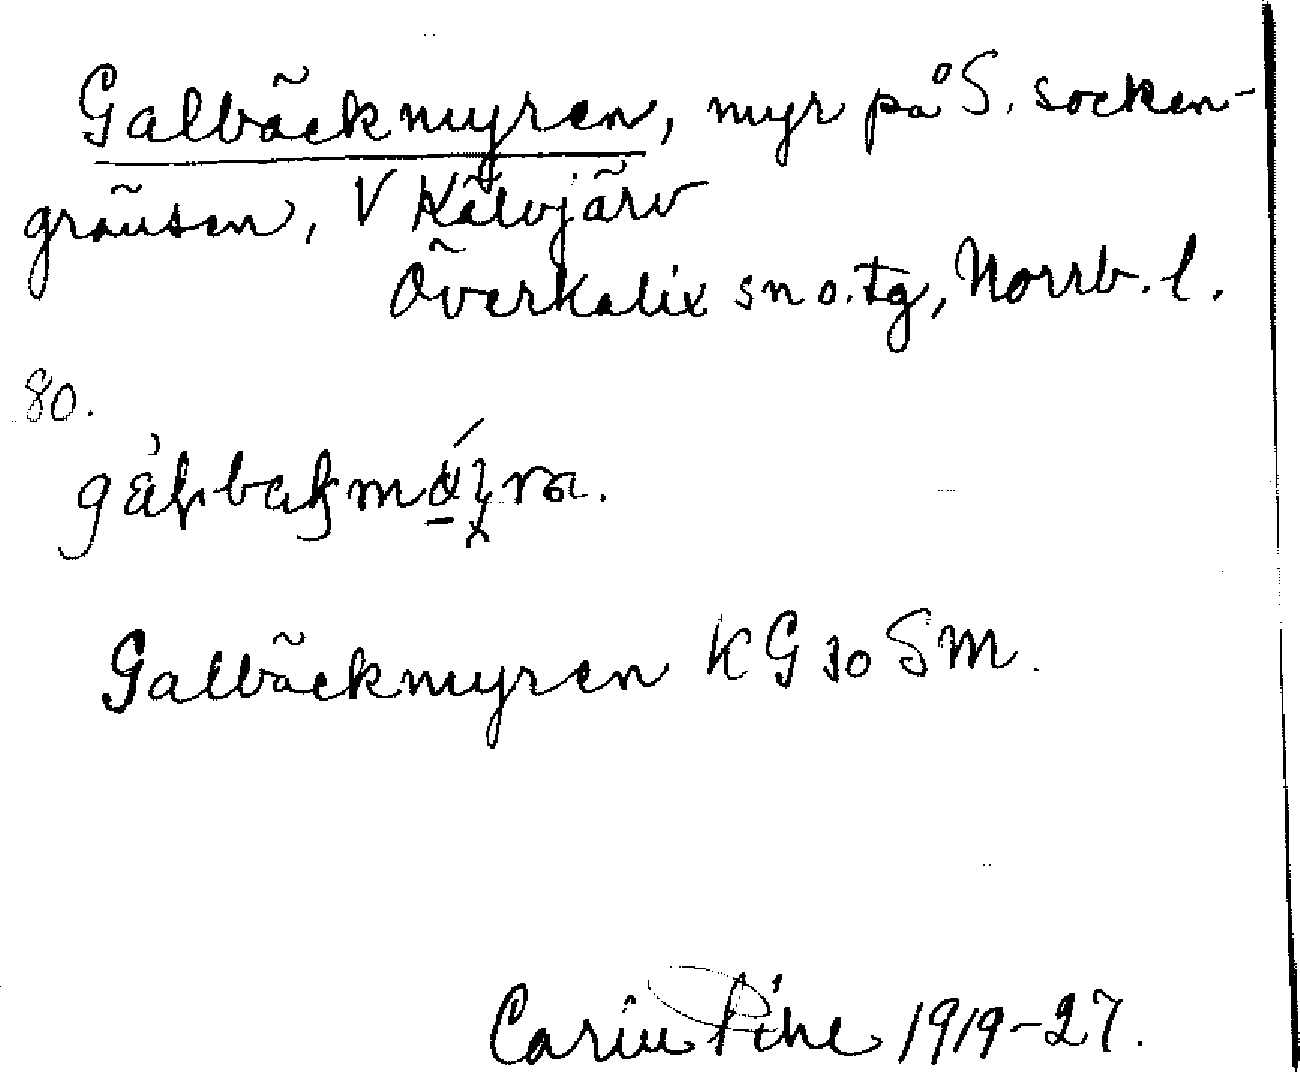 Galbäckmyren, myr på S. socken-
gränsen, V Kälvjärv
Överkalix sn o. tg, Norrb. l.
80.
Galbäckmyren KG 30 SM.
Carin Pihl 1919-27.